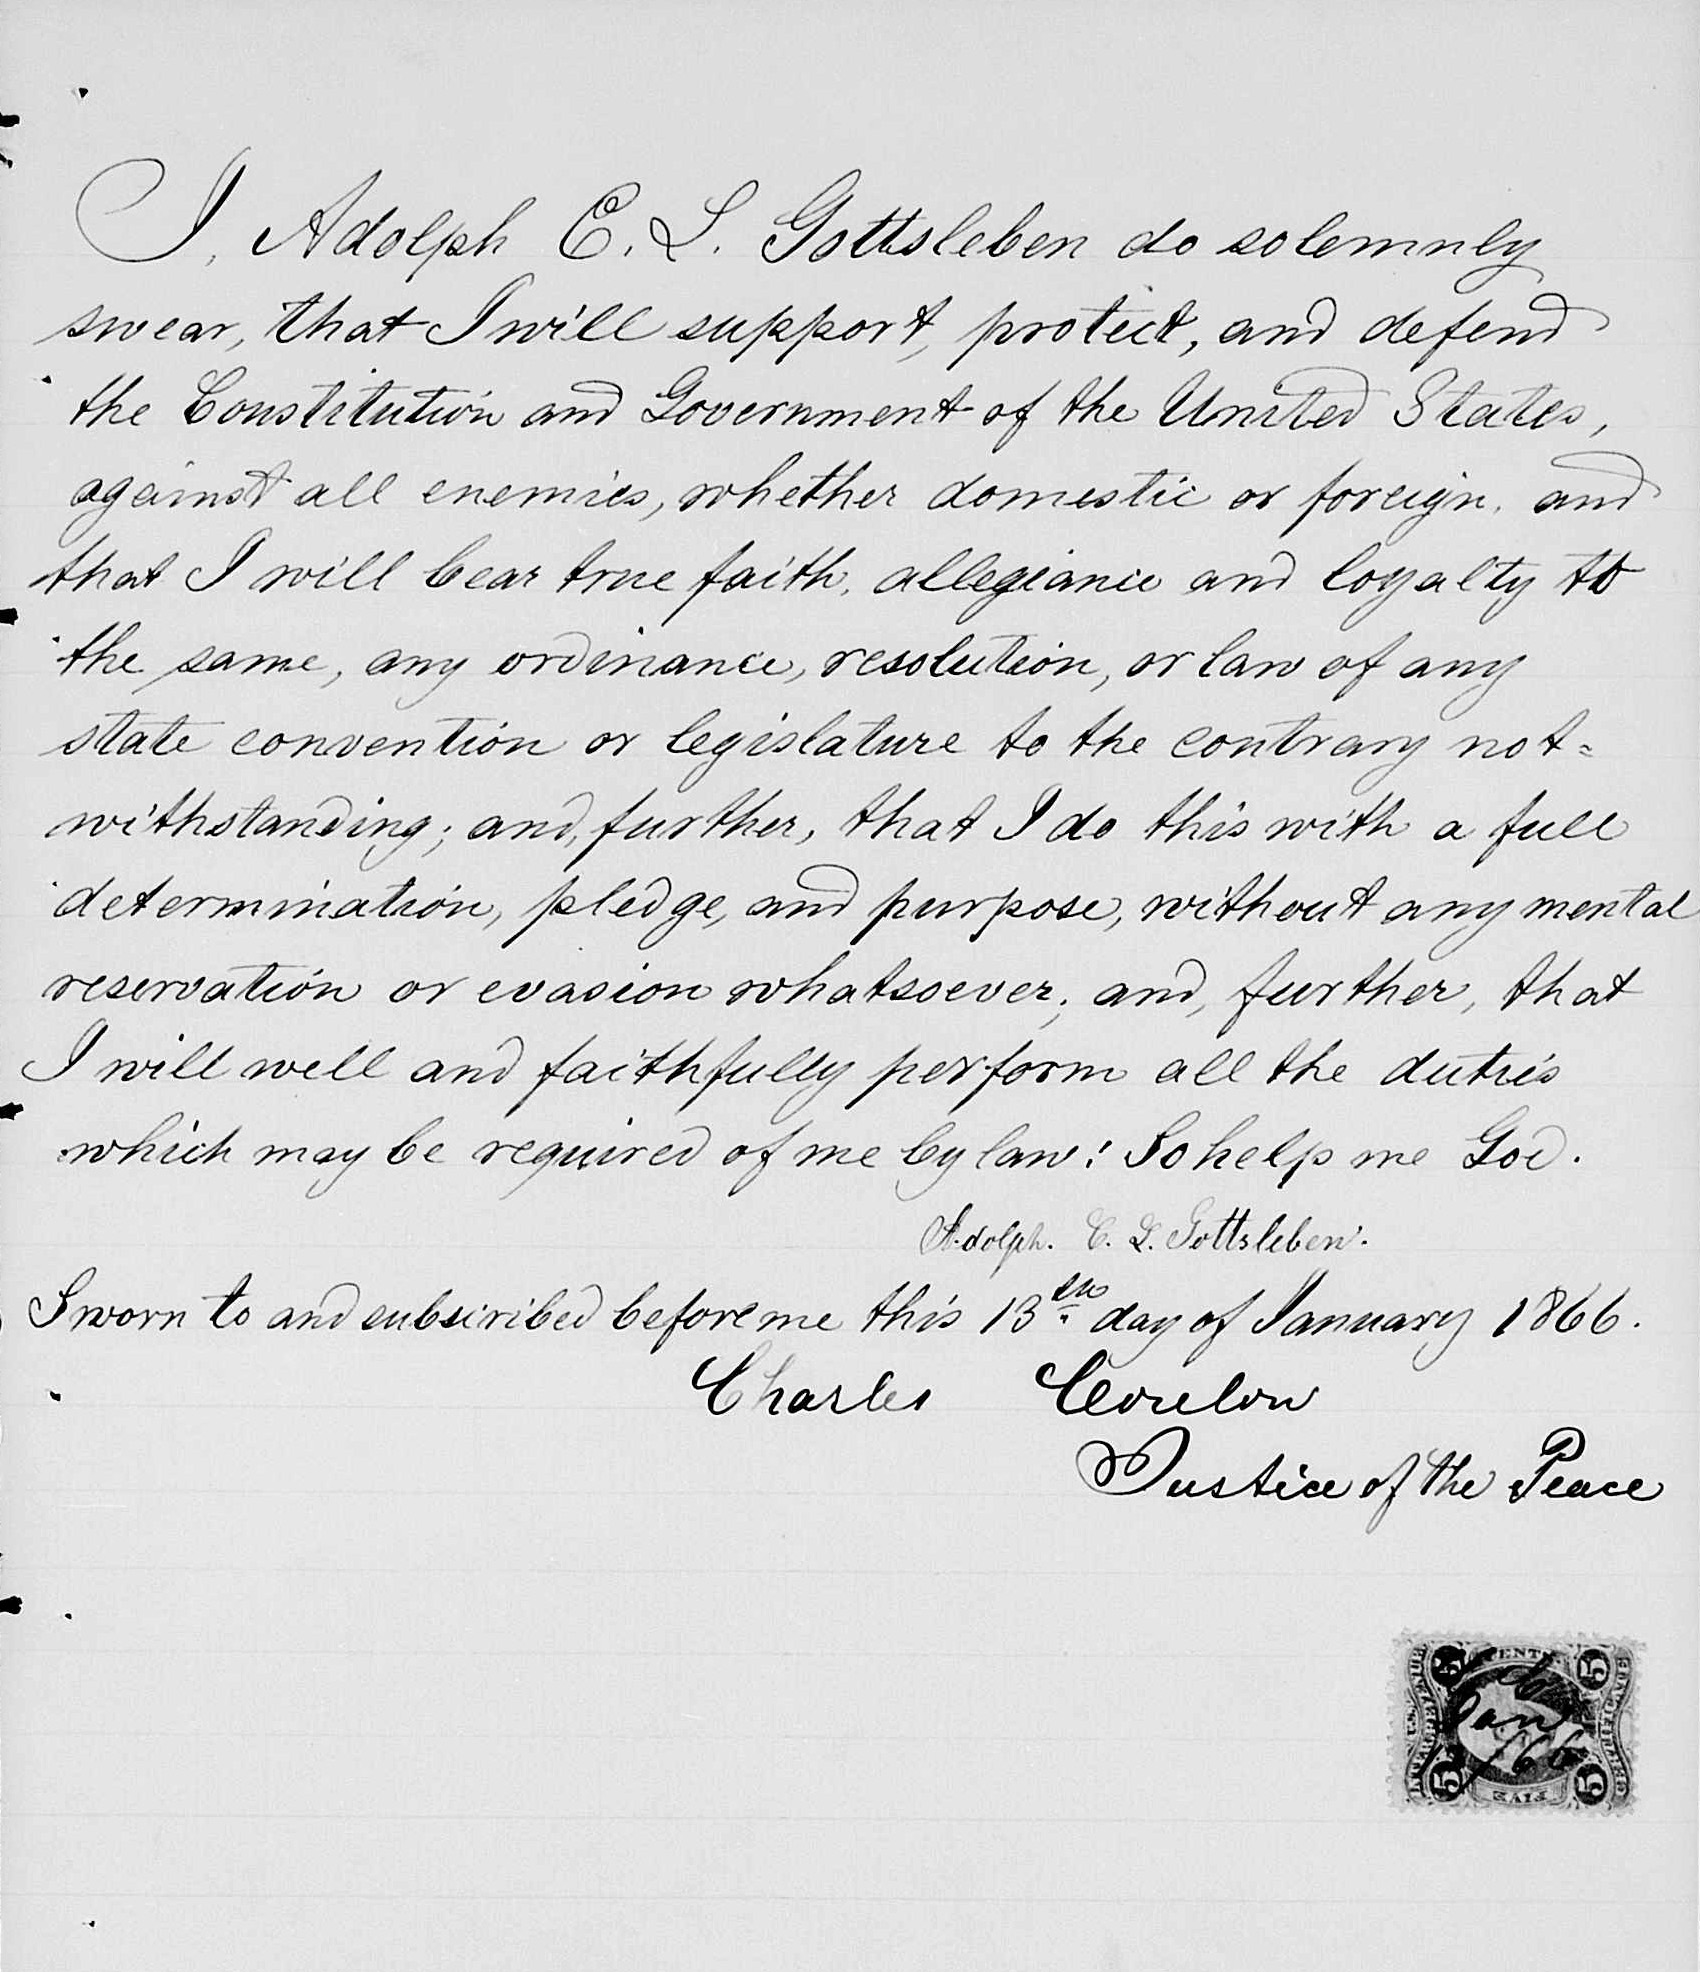 I, Adolph E. L. Gottsleben do solemnly
swear, that I will support, protect, and defend
the Constitution and Government of the United States,
against all enemies, whether domestic or foreign, and
that I will bear true faith, allegiance and loyalty to
the same, any ordinance, resolution, or law of any
state convention or legislature to the contrary not=
withstanding; and, further, that I do this with a full
determination, pledge, and purpose, without any mental
reservation or evasion whatsoever; and, further, that
I will well and faithfully perform all the duties
which may be required of me by law: So help me God.
Adolph. E. L. Gottsleben.
Sworn to and subscribed before me this 13th day of January 1866.
Charles
Justice of the Peace
5 CENTS 5
U.S. INTER. REVENUE
CERTIFICATE
Jan
/66
5 FIVE 5